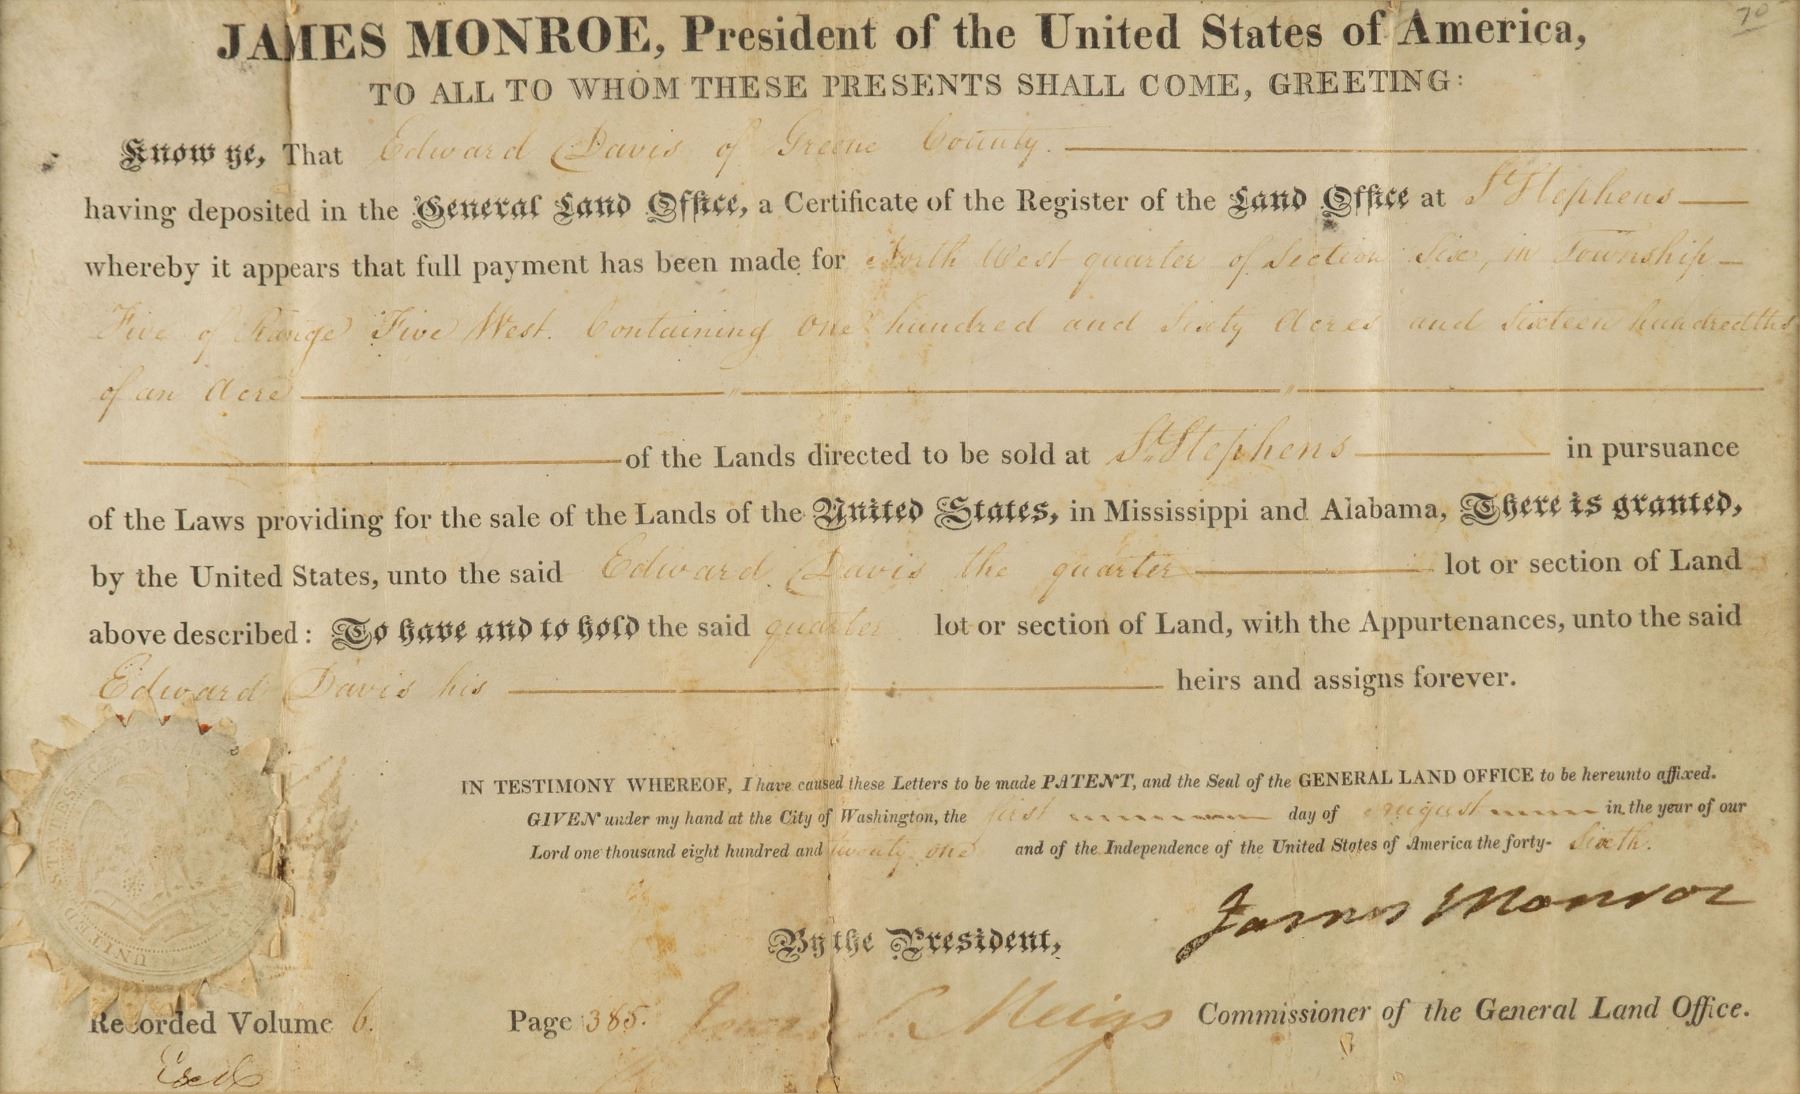 70
JAMES MONROE, President of the United States of America,
TO ALL TO WHOM THESE PRESENTS SHALL COME, GREETING:
Know ye, That Edward Davis of Greene County.
having deposited in the General Land Office, a Certificate of the Register of the Land Office at St Stephens
whereby it appears that full payment has been made for North West quarter of Section Six, in Township
Five of Range Five West. Containing One hundred and Sixty Acres and Sixteen hundredths
of an Acre
of the Lands directed to be sold at St Stephens in pursuance
of the Laws providing for the sale of the Lands of the United States, in Mississippi and Alabama, There is granted,
by the United States, unto the said Edward Davis the quarter lot or section of Land
above described: To have and to hold the said quarter lot or section of Land, with the Appurtenances, unto the said
Edward Davis his heirs and assigns forever.
IN TESTIMONY WHEREOF, I have caused these Letters to be made PATENT, and the Seal of the GENERAL LAND OFFICE to be hereunto affixed.
GIVEN under my hand at the City of Washington, the first day of August in the year of our
Lord one thousand eight hundred and twenty one and of the Independence of the United States of America the forty-Sixth.
James Monroe
By the President,
Recorded Volume 6. Page 385. Meigs Commissioner of the General Land Office.